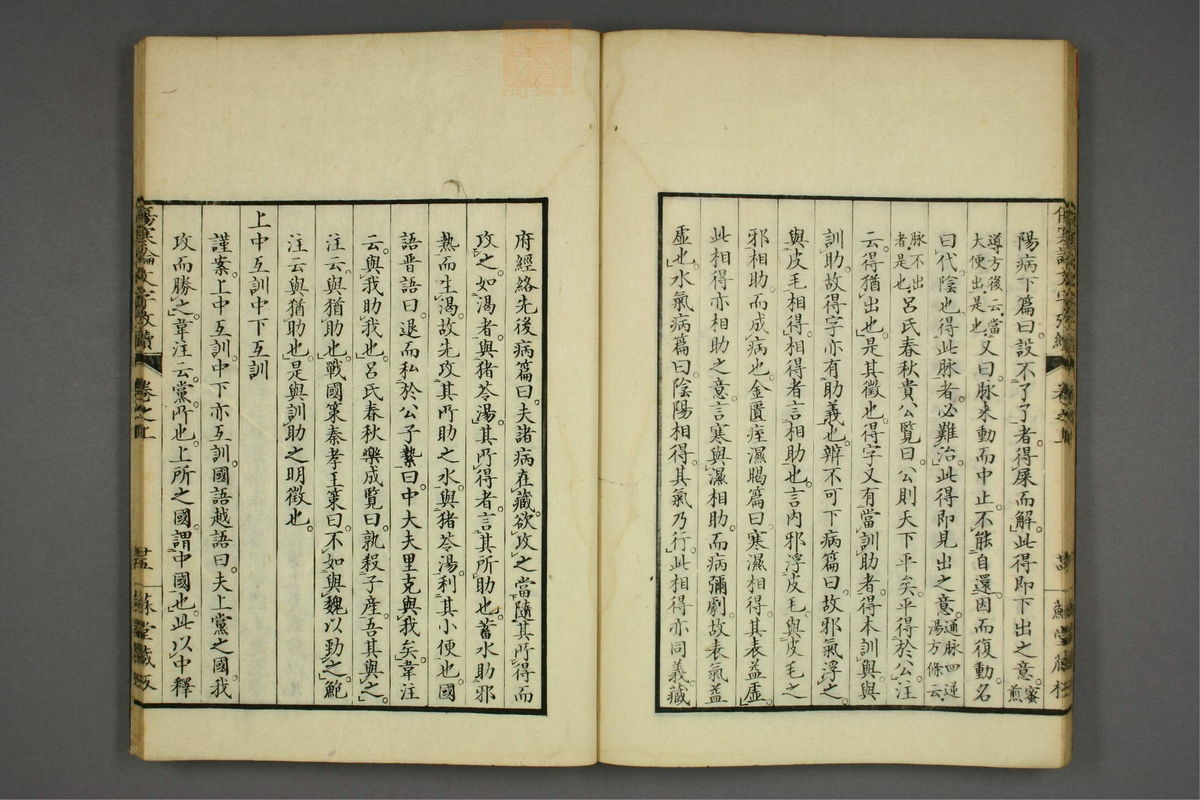 陽病下篇曰。設不了了者。得屎而解。此得即下出之意。蜜煎
導方後云。當大便出是也。又曰。脉来動而中止。不能自還。因而復動。名
曰代。陰也。得此脉者。必難治。此得即見出之意。通脉四逆湯方條云。
脉不出者是也。呂氏春秋貴公覽曰。公則天下平矣。平得於公。注
云。得猶出也。是其徵也。得字又有當訓助者。得本訓與。與
訓助。故得字亦有助義也。辨不可下病篇曰。故邪氣浮之。
與皮毛相得。相得者言相助也。言内邪浮皮毛。與皮毛之
邪相助。而成病也。金匱痙濕暍篇曰。寒濕相得。其表益虛。
此相得亦相助之意。言寒與濕相助。而病彌劇。故表氣益
虛也。水氣病篇曰。陰陽相得。其氣乃行。此相得亦同義。藏
府經絡先後病篇曰。夫諸病在藏。欲攻之。當隨其所得而
攻之。如渴者。與猪苓湯。其所得者。言其所助也。蓄水助邪
熱而生渴。故先攻其所助之水。與猪苓湯。利其小便也。國
語晋語曰。退而私於公子縶曰。中大夫里克與我矣。韋注
云。與我助我也。呂氏春秋樂成覽曰。孰殺子産。吾其與之。
注云。與猶助也。戰國策秦孝王策曰。不如與魏以勁之。鮑
注云。與猶助也。是與訓助之明徵也。
上中互訓中下互訓
謹案。上中互訓。中下亦互訓。國語越語曰。夫上黨之國。我
攻而勝之。韋注云。黨所也。上所之國。謂中國也。此以中釋
卷之上
卷之上